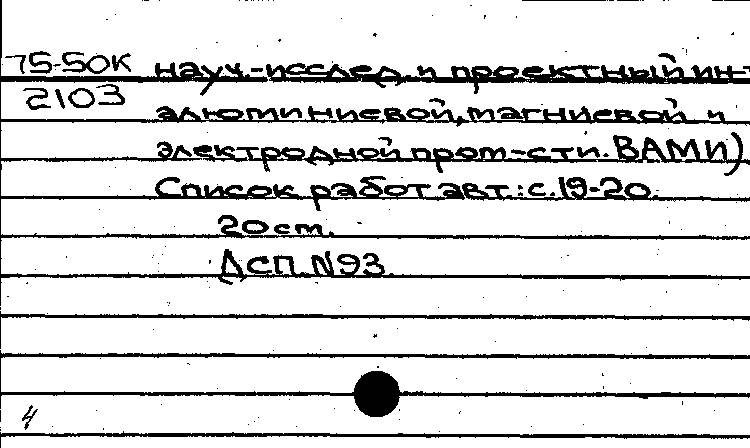 75-50к науч.-исслед. и проектный ин-т
2103 алюминиевой, магниевой и
электродной пром-сти. ВАМИ)
Список работ авт.: с. 19-20.
20 ст.
ДСП. N93.
4